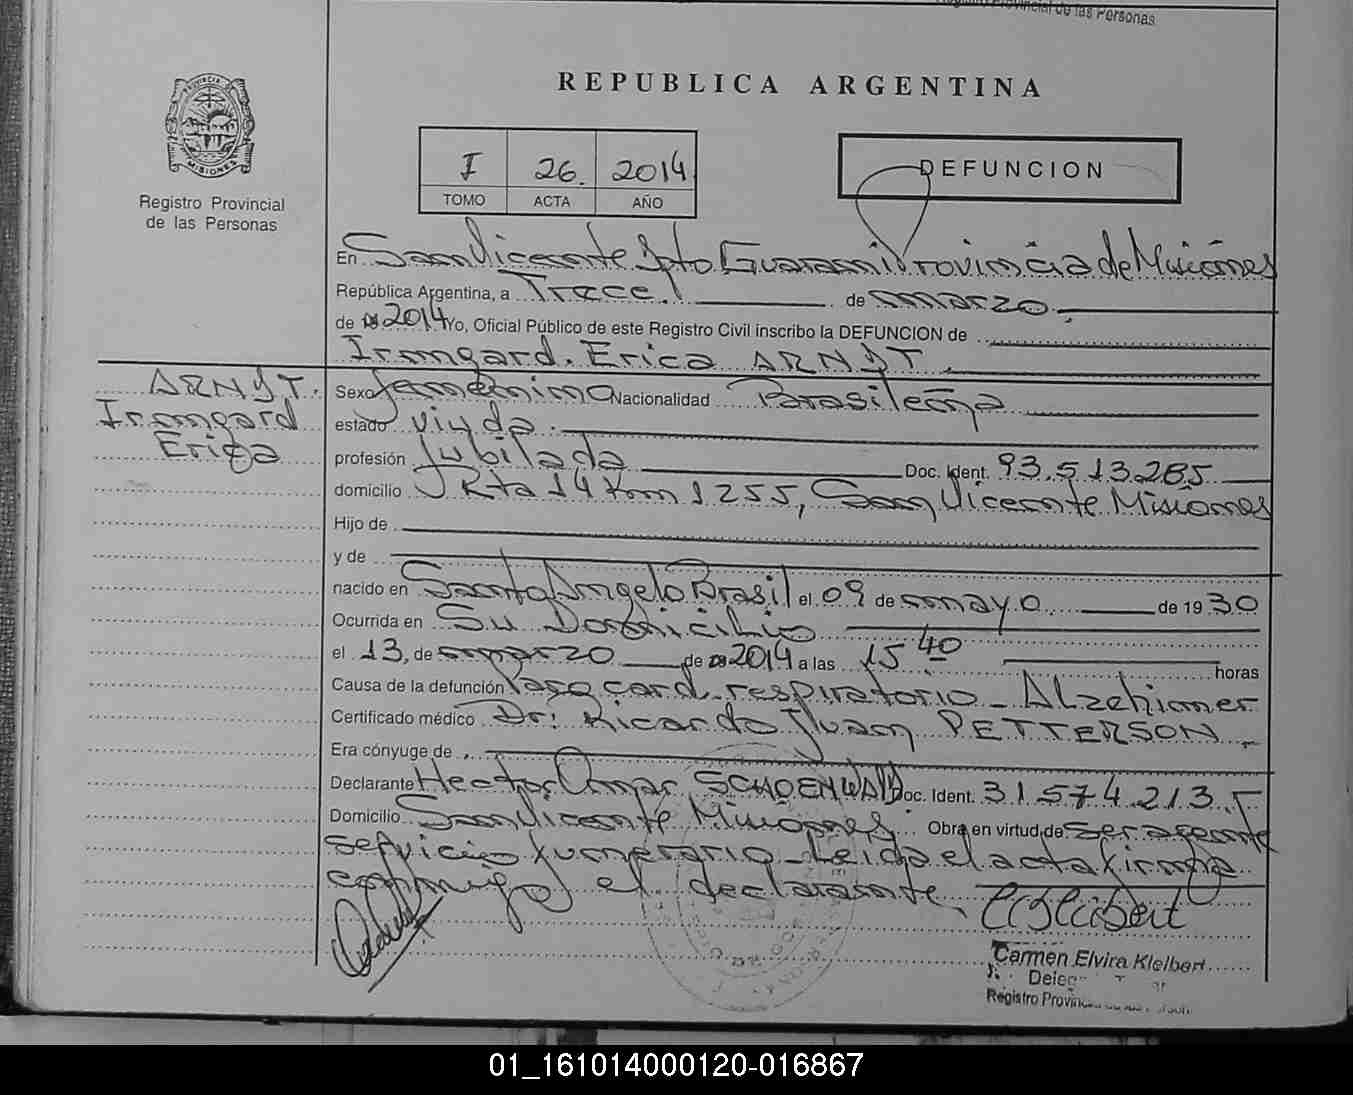 Registro Provincial de las Personas
REPUBLICA ARGENTINA
PROVINCIA
MISIONES
Registro Provincial
de las Personas
I 26. 2014
TOMO ACTA AÑO
DEFUNCION
En San Vicente Dpto Guarani Provincia de Misiones
República Argentina, a Trece de marzo
de 2014 Yo, Oficial Público de este Registro Civil inscribo la DEFUNCION de
Irmgard. Erica ARNDT
ARNDT.
Irmgard
Erica
Sexo femenino Nacionalidad Brasileña
estado viuda.
profesión Jubilada Doc. Ident. 93.513.285
domicilio Rta 14 Km 1255, San Vicente Misiones
Hijo de
y de
nacido en Santo Angelo Brasil el 09 de mayo de 1930
Ocurrida en Su Domicilio
el 13, de marzo de 2014 a las 15 40 horas
Causa de la defunción Paro card. respiratorio - Alzehimer
Certificado médico Dr: Ricardo Juan PETTERSON
Era cónyuge de
Declarante Hector Omar SCHOENWALD Doc. Ident. 31.574.213
Domicilio San Vicente Misiones Obra en virtud de ser agente
servicio funerario - Leida el acta firma
conmigo el declarante
Carmen Elvira Kleibert
Registro Provincial
01_161014000120-016867